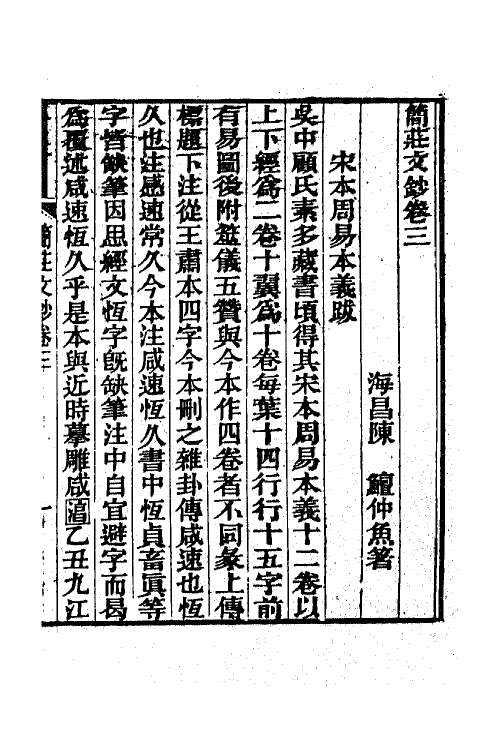 簡莊文鈔卷三
海昌陳　鱣仲魚著
宋本周易本義跋
吳中顧氏素多藏書頃得其宋本周易本義十二卷以
上下經爲二卷十翼爲十卷每葉十四行行十五字前
有易圖後附筮儀五贊與今本作四卷者不同彖上傳
標題下注從王肅本四字今本刪之雜卦傳咸速也恆
久也注感速常久今本注咸速恆久書中恆貞畜眞等
字皆缺筆因思經文恆字旣缺筆注中自宜避字而曷
爲覆述咸速恆久乎是本與近時摹雕咸淳乙丑九江
簡莊文鈔卷三
一